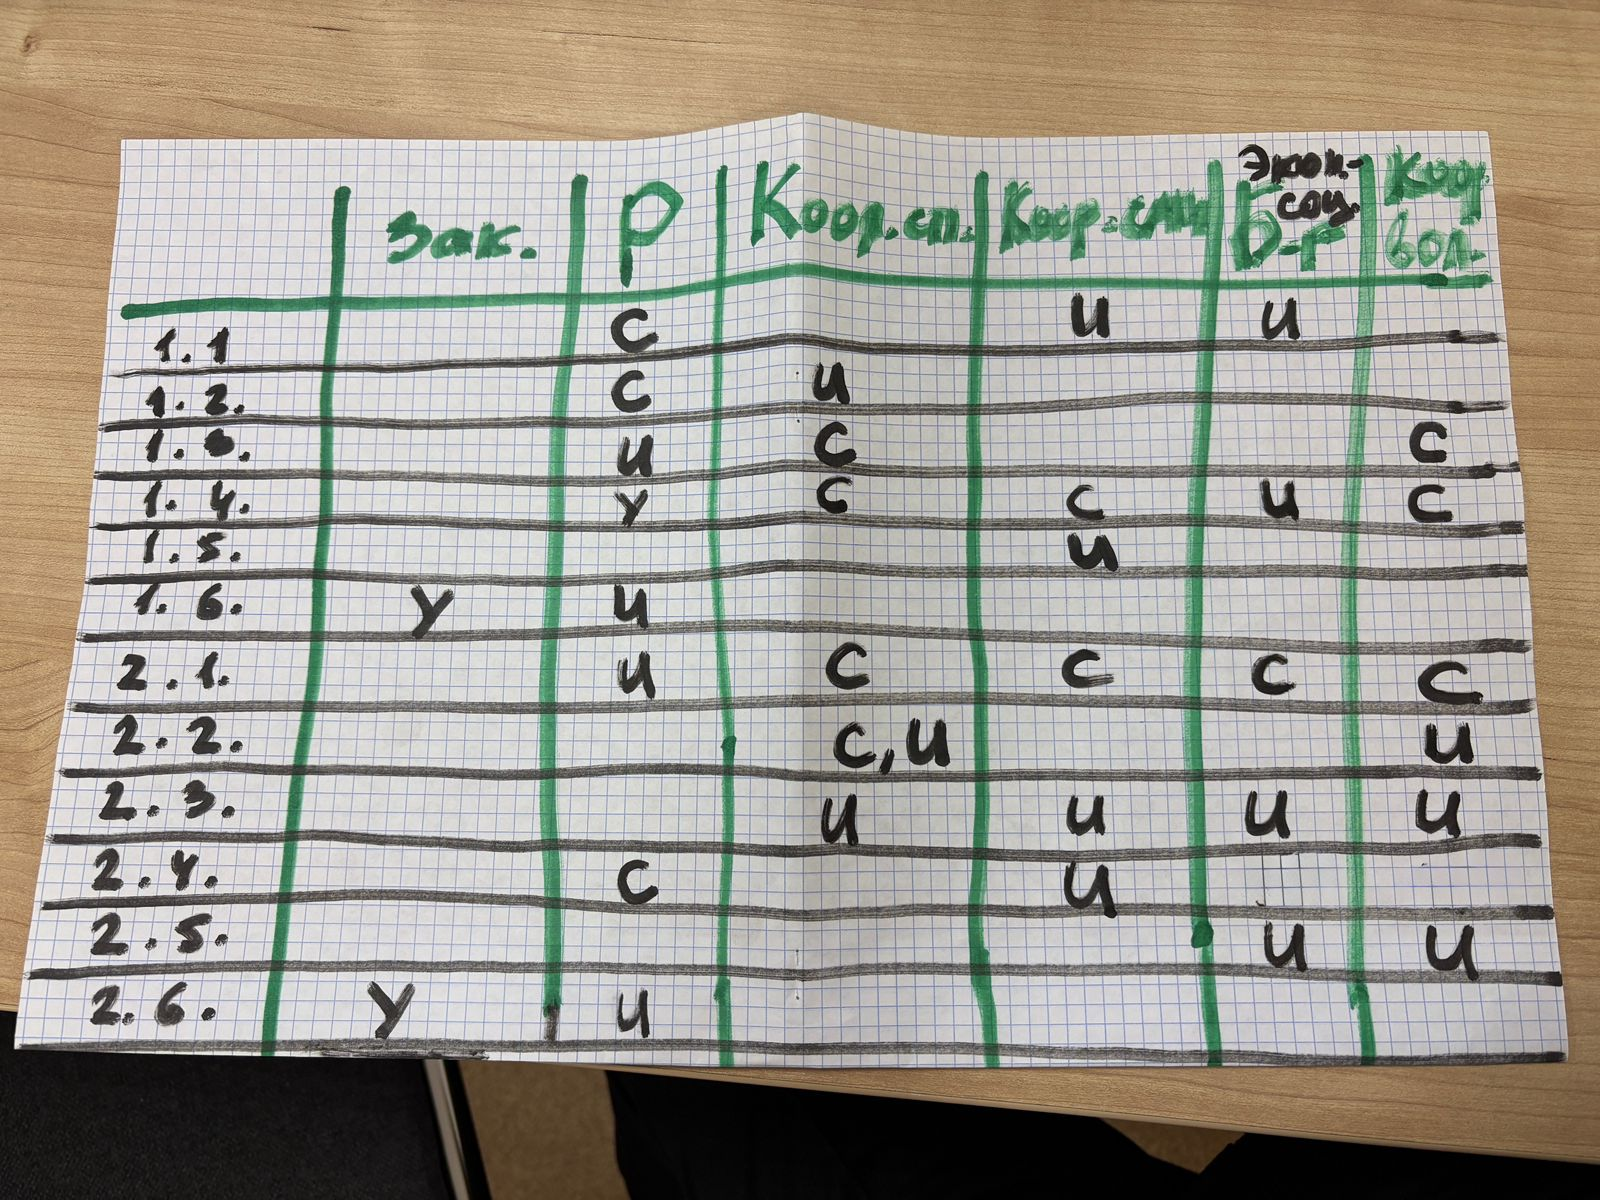 Зак. Р Коор.сп. Коор.сми Экон.-соц. Б-г Коор. вол.
1.1 С И И
1.2. С И
1.3. И С С
1.4. У С С И С
1.5. И
1.6. У И
2.1. И С С С С
2.2. С,И И
2.3. И И И И
2.4. С И
2.5. И И
2.6. У И